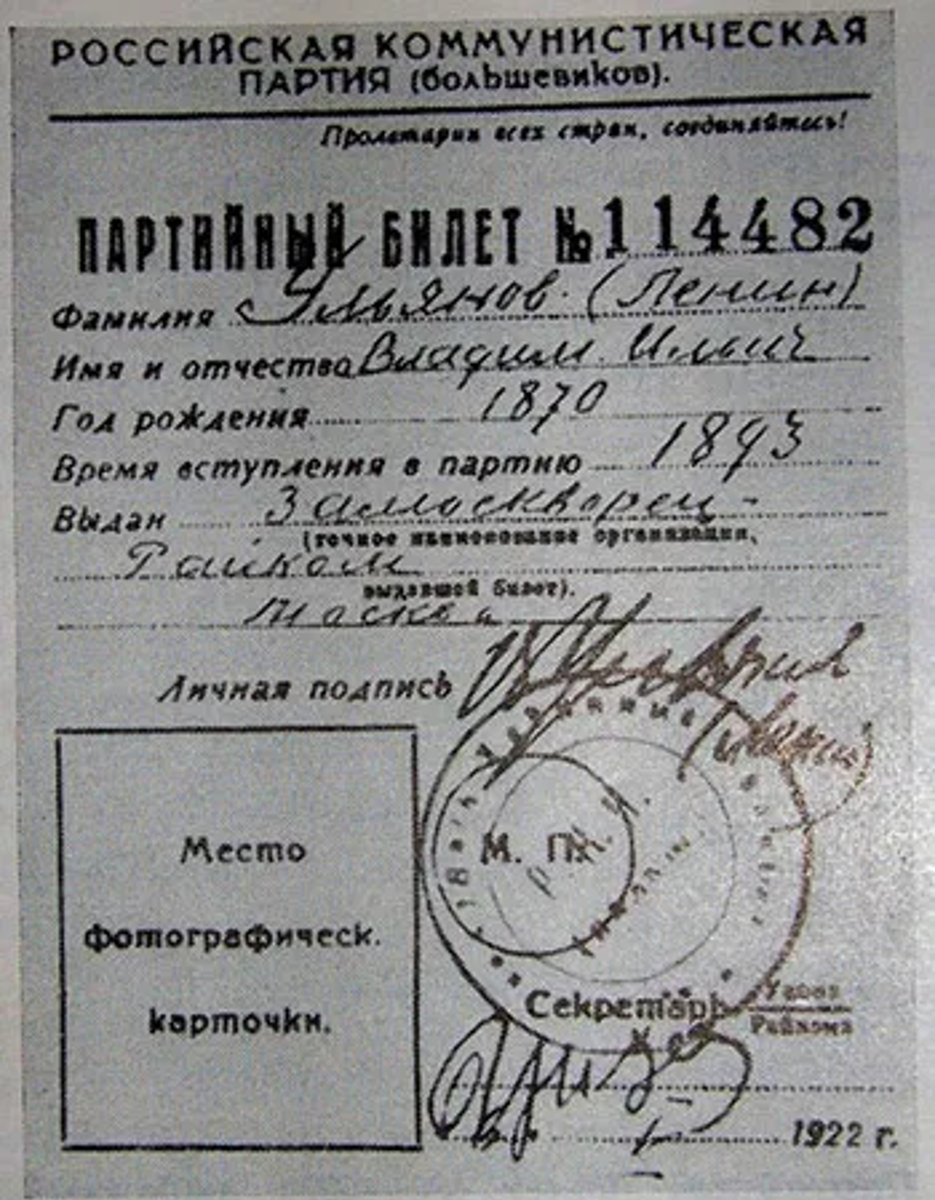 РОССИЙСКАЯ КОММУНИСТИЧЕСКАЯ
ПАРТИЯ (большевиков).
Пролетарии всех стран, соединяйтесь!
ПАРТИЙНЫЙ БИЛЕТ № 114482
Фамилия Ульянов (Ленин)
Имя и отчество Владим. Ильич
Год рождения 1870
Время вступления в партию 1893
Выдан Замоскворец-
(точное наименование организации,
Райком
выдавшей билет).
Москва
Личная подпись В Ульянов
(Ленин)
М. П.
Место
фотографическ.
карточки.
Секретарь Укома
Райкома
1922 г.